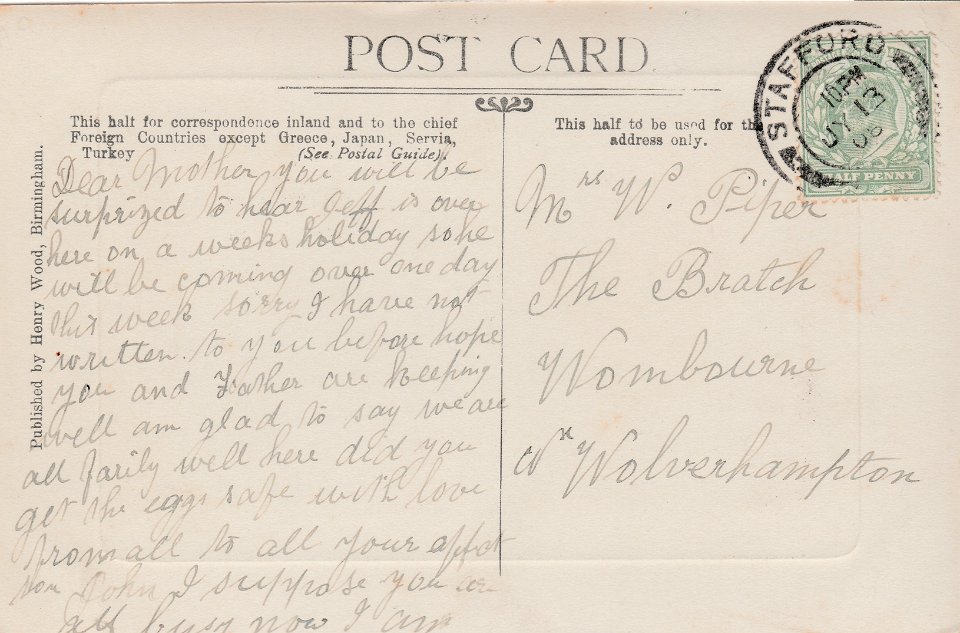 POST CARD
This half for correspondence inland and to the chief
Foreign Countries except Greece, Japan, Servia,
Turkey (See Postal Guide).
This half to be used for the
address only.
STAFFORD
10 PM
JY 13
08
HALF PENNY
Published by Henry Wood, Birmingham.
Dear Mother, you will be
surprized to hear Jeff is over
here on a weeks holiday so he
will be coming over one day
this week sorry I have not
written to you before hope
you and Father are keeping
well am glad to say we are
all farily well here did you
get the eggs safe with love
from all to all your affect
son John I suppose you are
all busy now I am
Mrs W. Piper
The Bratch
Wombourne
Nr Wolverhampton